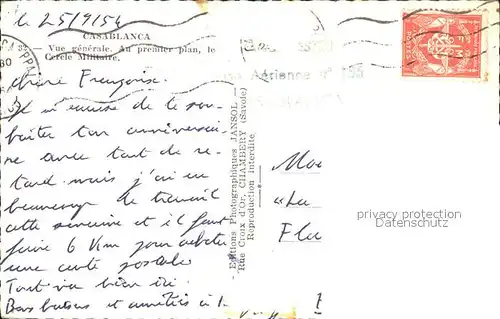 le 25/9/54
CASABLANCA
32 — Vue générale. Au premier plan, le
Cercle Militaire.
Chère Françoise.
Je m'excuse de te sou-
haiter ton anniversai-
re avec tant de re-
tard mais j'ai eu
beaucoup de travail
cette semaine et il faut
faire 6 Km pour acheter
une carte postale
Tout va bien ici.
Bons baisers et amitiés à
Editions Photographiques JANSOL
Rue Croix d'Or, CHAMBERY (Savoie)
Reproduction Interdite
Aérienne N°
"La
privacy protection
Datenschutz